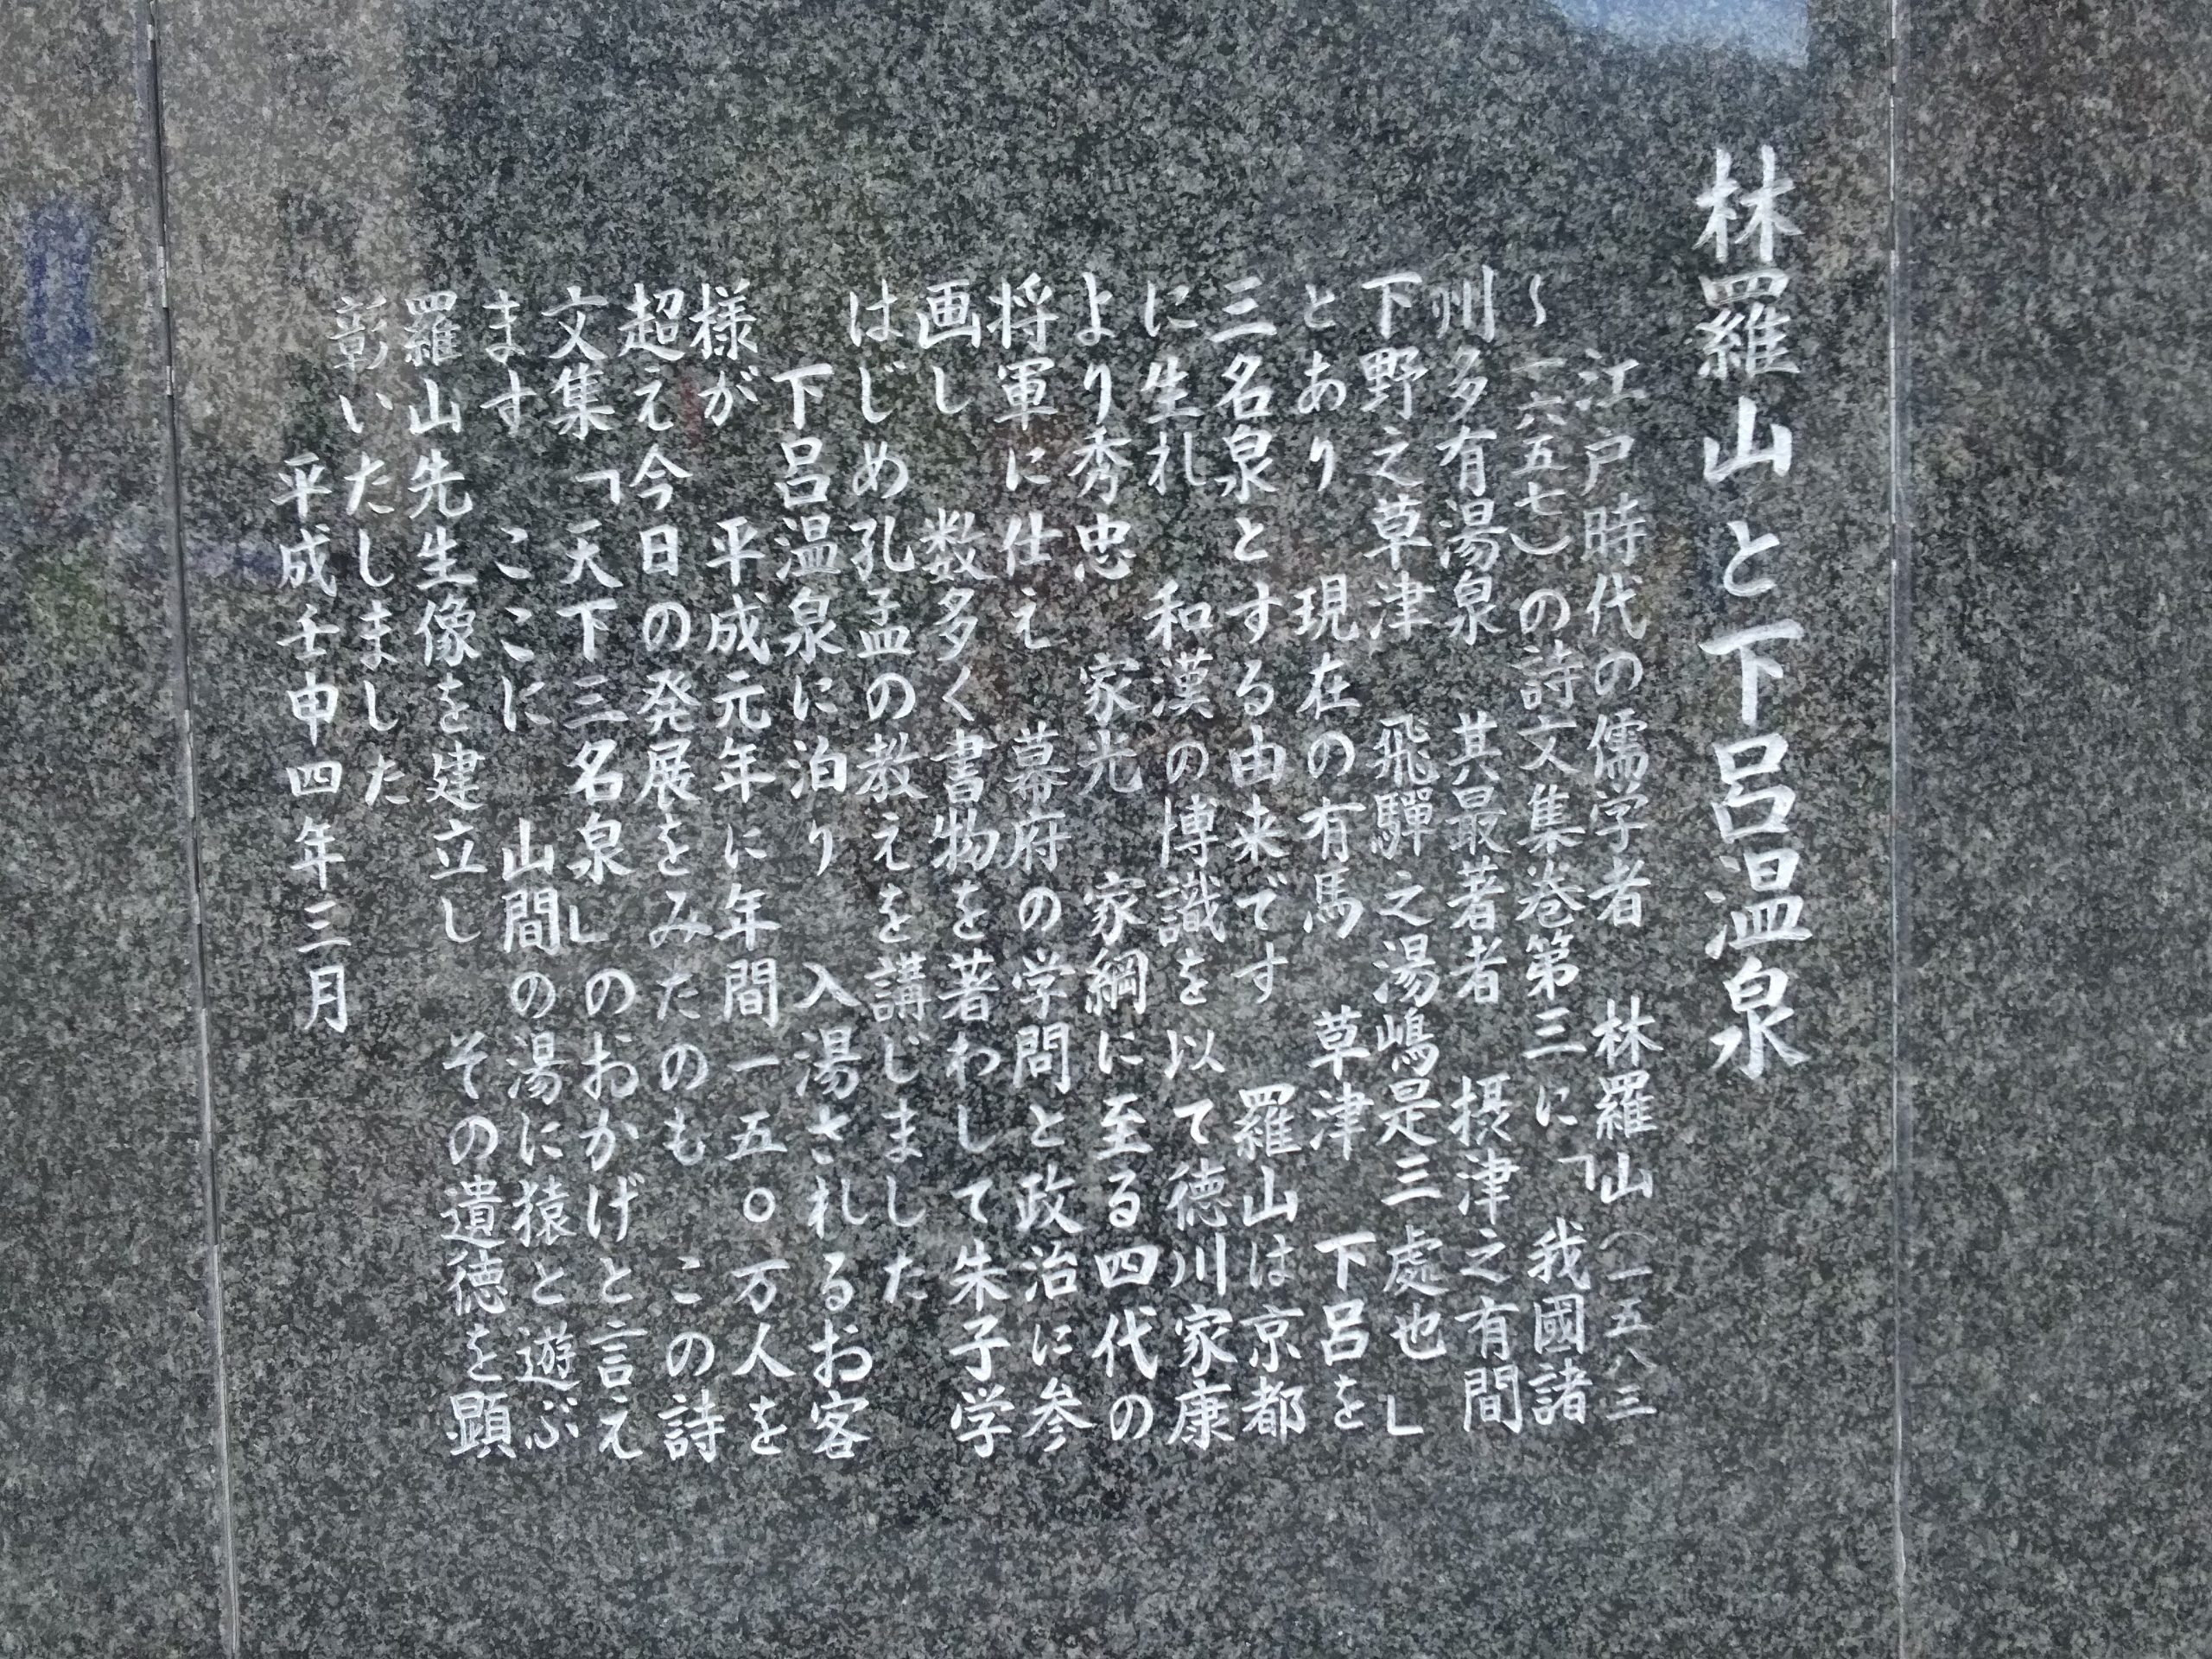 林羅山と下呂温泉
江戸時代の儒学者　林羅山（一五八三
〜一六五七）の詩文集巻第三に「我國諸
州多有湯泉　其最著者　摂津之有間
下野之草津　飛驒之湯嶋是三處也」
とあり　現在の有馬　草津　下呂を
三名泉とする由来です　羅山は京都
に生れ　和漢の博識を以て徳川家康
より秀忠　家光　家綱に至る四代の
将軍に仕え　幕府の学問と政治に参
画し　数多く書物を著わして朱子学
はじめ孔孟の教えを講じました
下呂温泉に泊り　入湯されるお客
様が　平成元年に年間一五〇万人を
超え今日の発展をみたのも　この詩
文集「天下三名泉」のおかげと言え
ます　ここに　山間の湯に猿と遊ぶ
羅山先生像を建立し　その遺徳を顕
彰いたしました
平成壬申四年三月